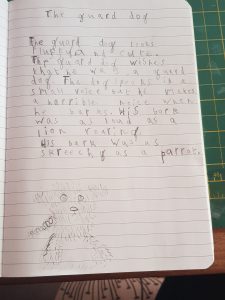 The guard dog
The guard dog looks
fluffy and cute.
The guard dog wishes
that he was a guard
dog. The dog barks in a
small voice but he makes
a horrible noise when
he barks. His bark
was as loud as a
lion roaring.
His bark was as
skreechy as a parrot.